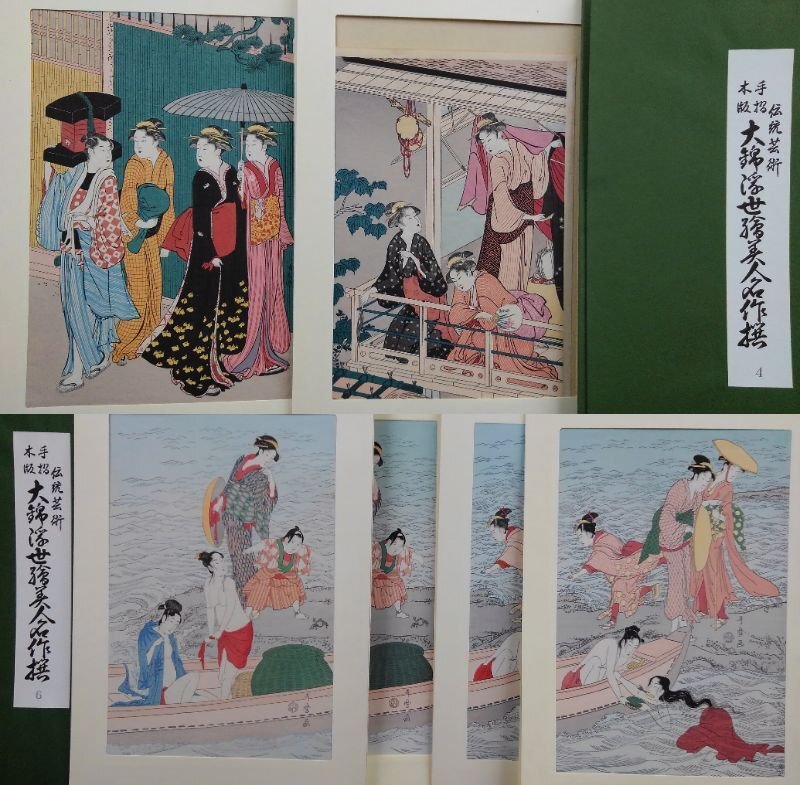 伝統芸術
手摺
木版
大錦浮世繪美人名作撰
4
伝統芸術
手摺
木版
大錦浮世繪美人名作撰
6